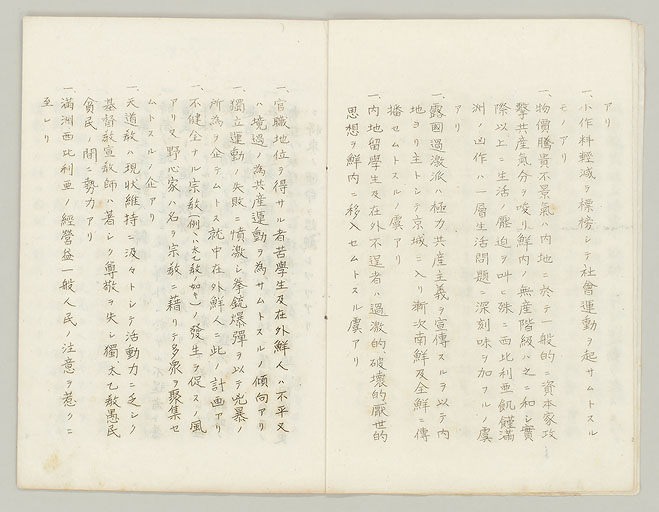 アリ
一、小作料輕減ヲ標榜シテ社會運動ヲ起サムトスル
モノアリ
一、物價騰貴不景氣ハ内地ニ於テ一般的ニ資本家攻
擊共産氣分ヲ唆リ鮮内ノ無産階級ハ之ニ和シ實
際以上ニ生活ノ壓迫ヲ叫ヒ殊ニ西比利亜飢饉滿
洲ノ凶作ハ一層生活問題ニ深刻味ヲ加フルノ虞
アリ
一、露國過激派ハ極力共産主義ヲ宣傳スルヲ以テ内
地ヨリ主トシテ京城ニ入リ漸次南鮮及全鮮ニ傳
播セムトスルノ虞アリ
一、内地留學生及在外不逞者ハ過激的破壞的厭世的
思想ヲ鮮内ニ移入セムトスル虞アリ
一、官職地位ヲ得サル者苦學生及在外鮮人ハ不平又
ハ境遇ノ為共産運動ヲ為サムトスルノ傾向アリ
一、獨立運動ノ失敗ニ憤激シ拳銃爆彈ヲ以テ兇暴ノ
所為ヲ企テムトス就中在外鮮人ニ此ノ計画アリ
一、不健全ナル宗教(例ヘハ太乙教ノ如キ)ノ發生ヲ促スノ風
アリ又野心家ハ名ヲ宗教ニ藉リテ多衆ヲ聚集セ
ムトスルノ企アリ
一、天道教ハ現状維持ニ汲々トシテ活動力ニ乏シク
基督教宣教師ハ著シク尊敬ヲ失シ獨太乙教愚民
貧民ノ間ニ勢力アリ
一、滿洲西比利亜ノ經營益一般人民ノ注意ヲ惹クニ
至レリ